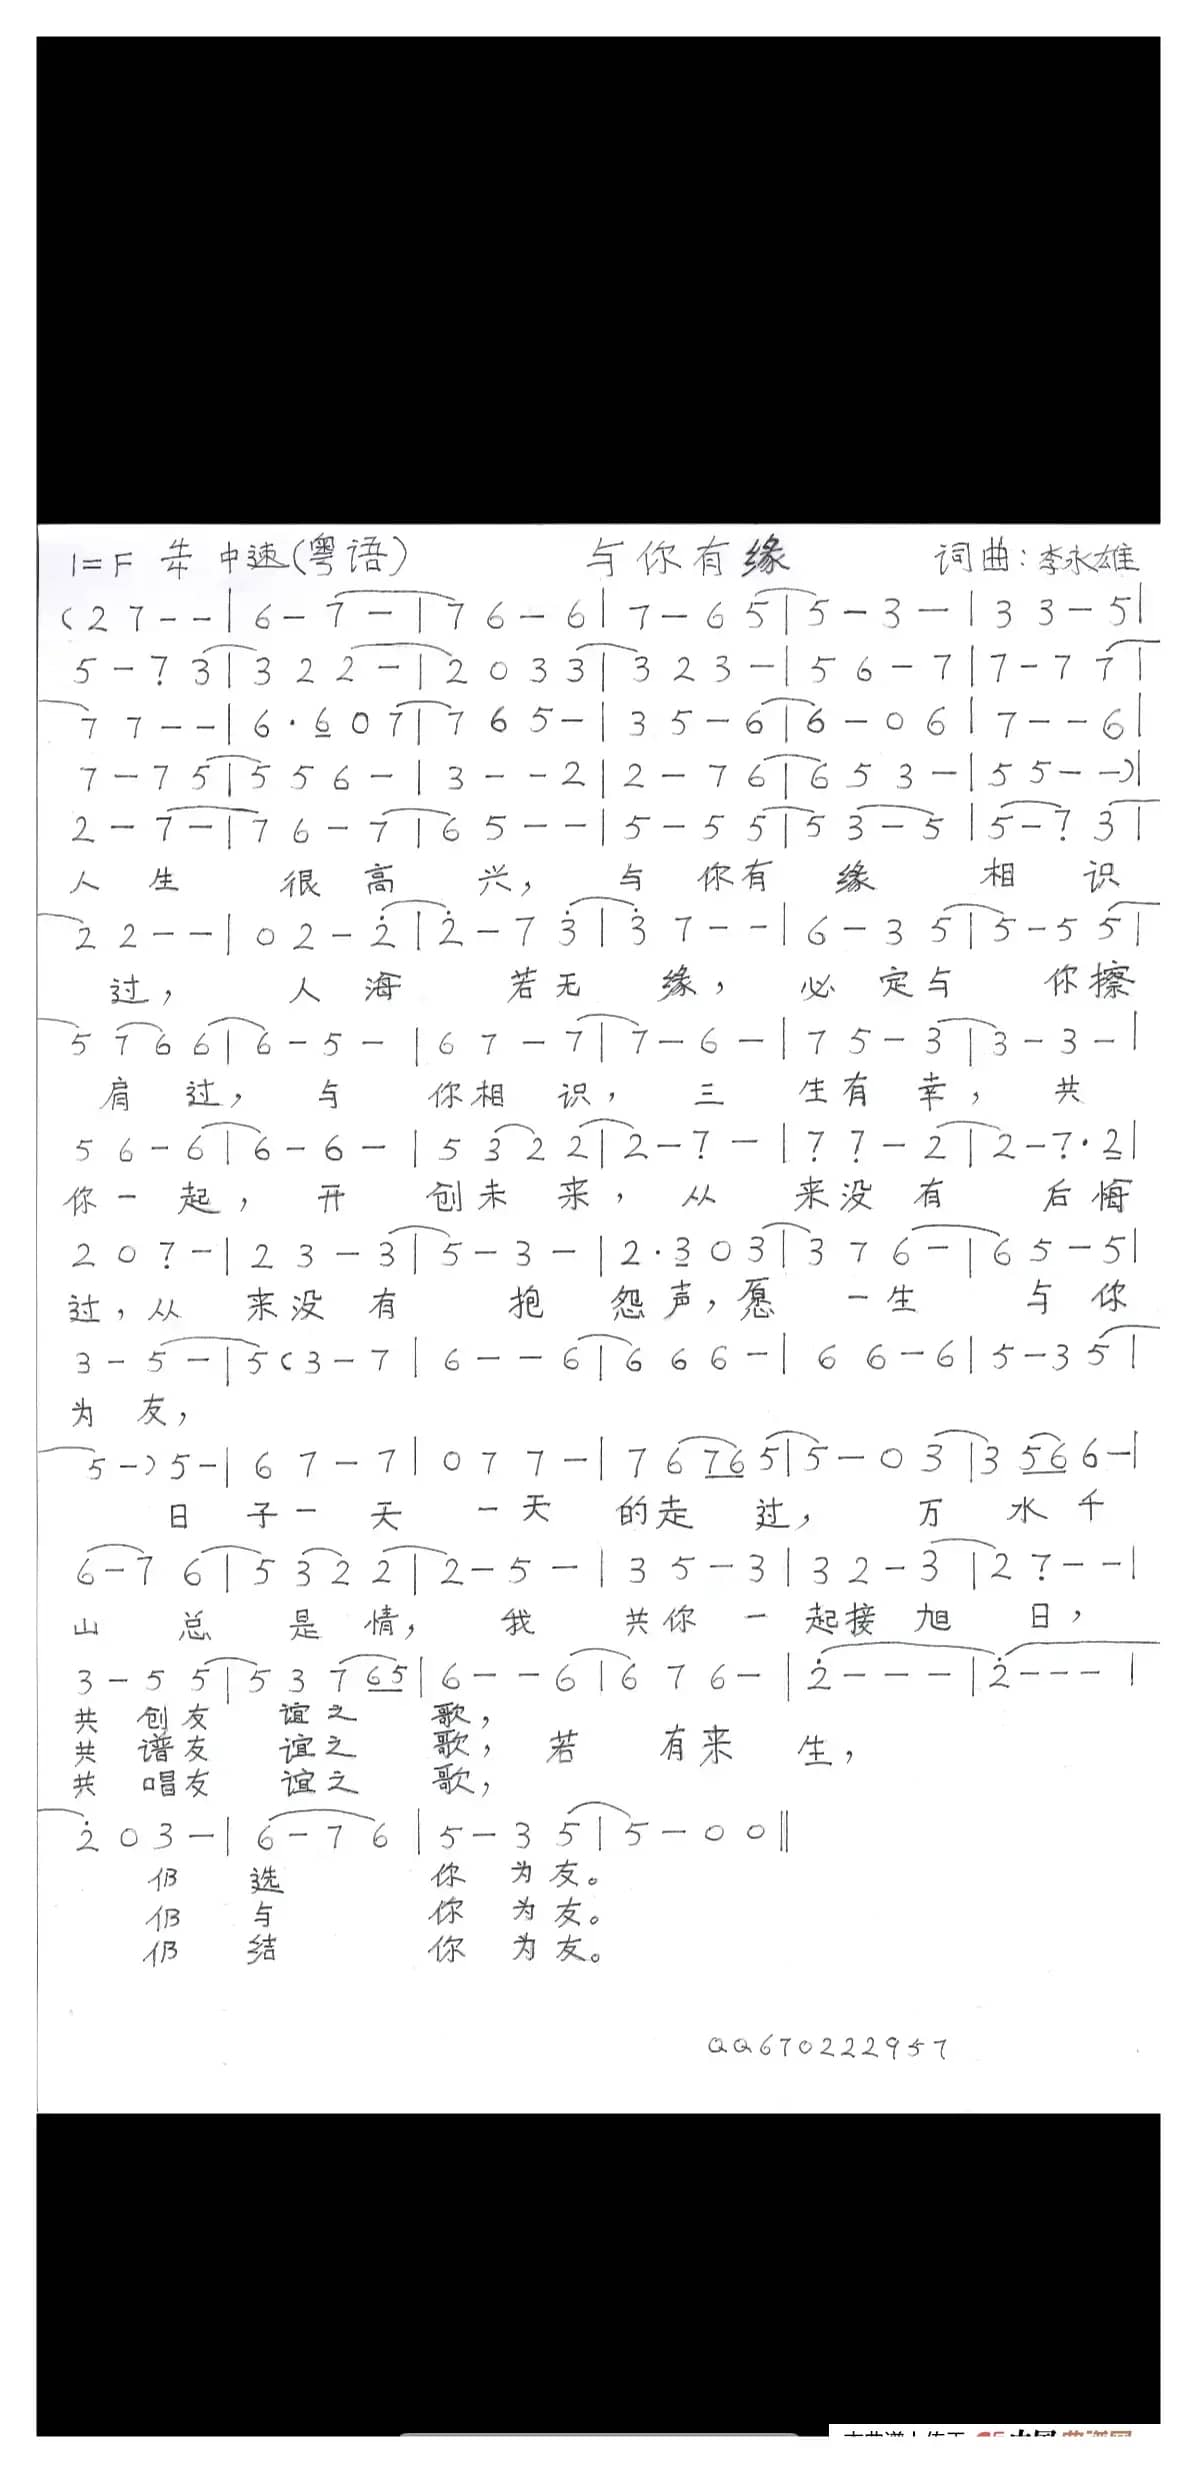 1=F 4/4 中速(粤语) 与你有缘 词曲:李永雄
(2 7 - - | 6 - 7 - | 7 6 - 6 | 7 - 6 5 | 5 - 3 - | 3 3 - 5 |
5 - 7̣ 3 | 3 2 2 - | 2 0 3 3 | 3 2 3 - | 5 6 - 7 | 7 - 7 7 |
7 7 - - | 6 · 6̲ 0 7 | 7 6 5 - | 3 5 - 6 | 6 - 0 6 | 7 - - 6 |
7 - 7 5 | 5 5 6 - | 3 - - 2 | 2 - 7 6 | 6 5 3 - | 5 5 - -) |
2 - 7 - | 7 6 - 7 | 6 5 - - | 5 - 5 5 | 5 3 - 5 | 5 - 7̣ 3 |
人 生 很 高 兴, 与 你 有 缘 相 识
2 2 - - | 0 2 - 2̇ | 2̇ - 7 3̇ | 3̇ 7 - - | 6 - 3 5 | 5 - 5 5 |
过, 人 海 若 无 缘, 必 定 与 你 擦
5 7 6 6 | 6 - 5 - | 6 7 - 7 | 7 - 6 - | 7 5 - 3 | 3 - 3 - |
肩 过, 与 你 相 识, 三 生 有 幸, 共
5 6 - 6 | 6 - 6 - | 5 3 2 2 | 2 - 7̣ - | 7̣ 7̣ - 2 | 2 - 7̣ · 2̲ |
你 一 起, 开 创 未 来, 从 来 没 有 后 悔
2 0 7̣ - | 2 3 - 3 | 5 - 3 - | 2 · 3̲ 0 3 | 3 7 6 - | 6 5 - 5 |
过, 从 来 没 有 抱 怨 声, 愿 一 生 与 你
3 - 5 - | 5 (3 - 7 | 6 - - 6 | 6 6 6 - | 6 6 - 6 | 5 - 3 5 |
为 友,
5 -) 5 - | 6 7 - 7 | 0 7 7 - | 7 6 7̲6̲ 5 | 5 - 0 3 | 3 5̲6̲ 6 - |
日 子 一 天 一 天 的 走 过, 万 水 千
6 - 7 6 | 5 3 2 2 | 2 - 5 - | 3 5 - 3 | 3 2 - 3 | 2 7̣ - - |
山 总 是 情, 我 共 你 一 起 接 旭 日,
3 - 5 5 | 5 3 7 6̲5̲ | 6 - - 6 | 6 7 6 - | 2̇ - - - | 2̇ - - - |
共 创 友 谊 之 歌,
共 谱 友 谊 之 歌, 若 有 来 生,
共 唱 友 谊 之 歌,
2̇ 0 3 - | 6 - 7 6 | 5 - 3 5 | 5 - 0 0 ‖
仍 选 你 为 友。
仍 与 你 为 友。
仍 结 你 为 友。
QQ670222957